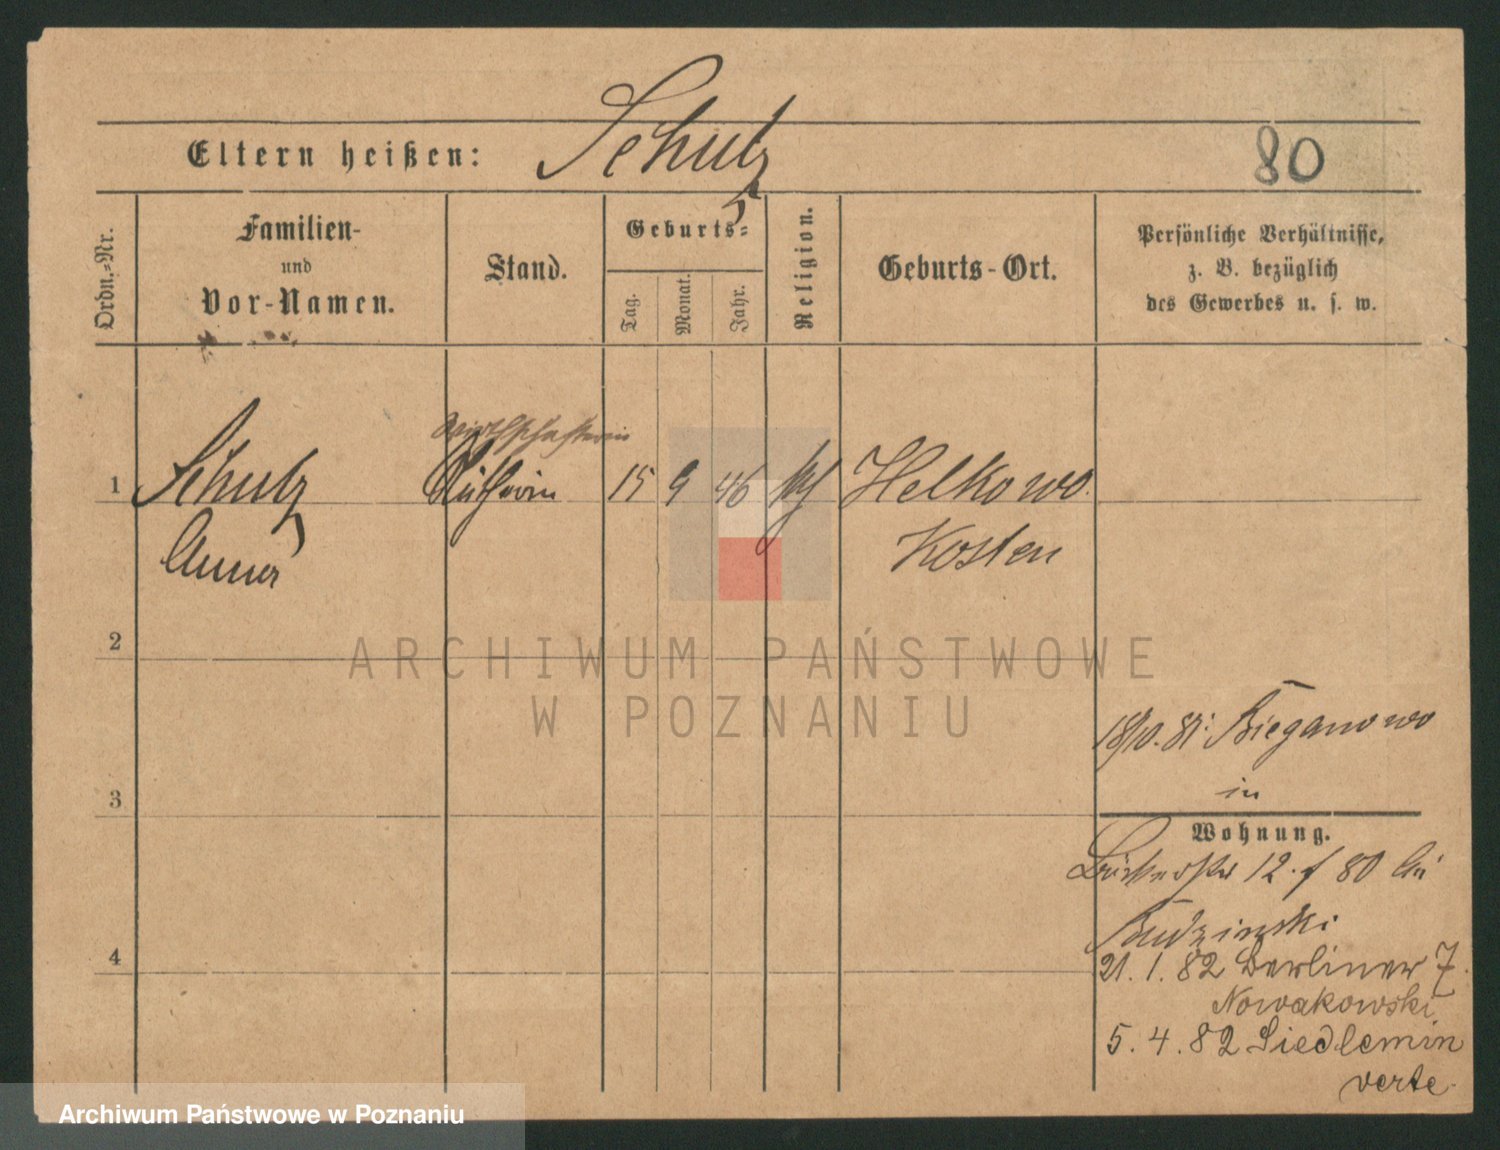 Eltern heißen: Schulz
80
Ordn.-Nr.
Familien-
und
Vor-Namen.
Stand.
Geburts-
Tag.
Monat.
Jahr.
Religion.
Geburts-Ort.
Persönliche Verhältnisse,
z. B. bezüglich
des Gewerbes u. s. w.
Wirthschafterin
1 Schulz Köchin 15 9 46 kth Helkowo.
Anna Kosten
2
ARCHIWUM PAŃSTWOWE
W POZNANIU
18/10. 81: Bieganowo
in
3
Wohnung.
12. 80 bei
Budzinski
21. 1. 82 Berliner 7.
4
Nowakowski
5. 4. 82 Siedlemin
verte.
Archiwum Państwowe w Poznaniu